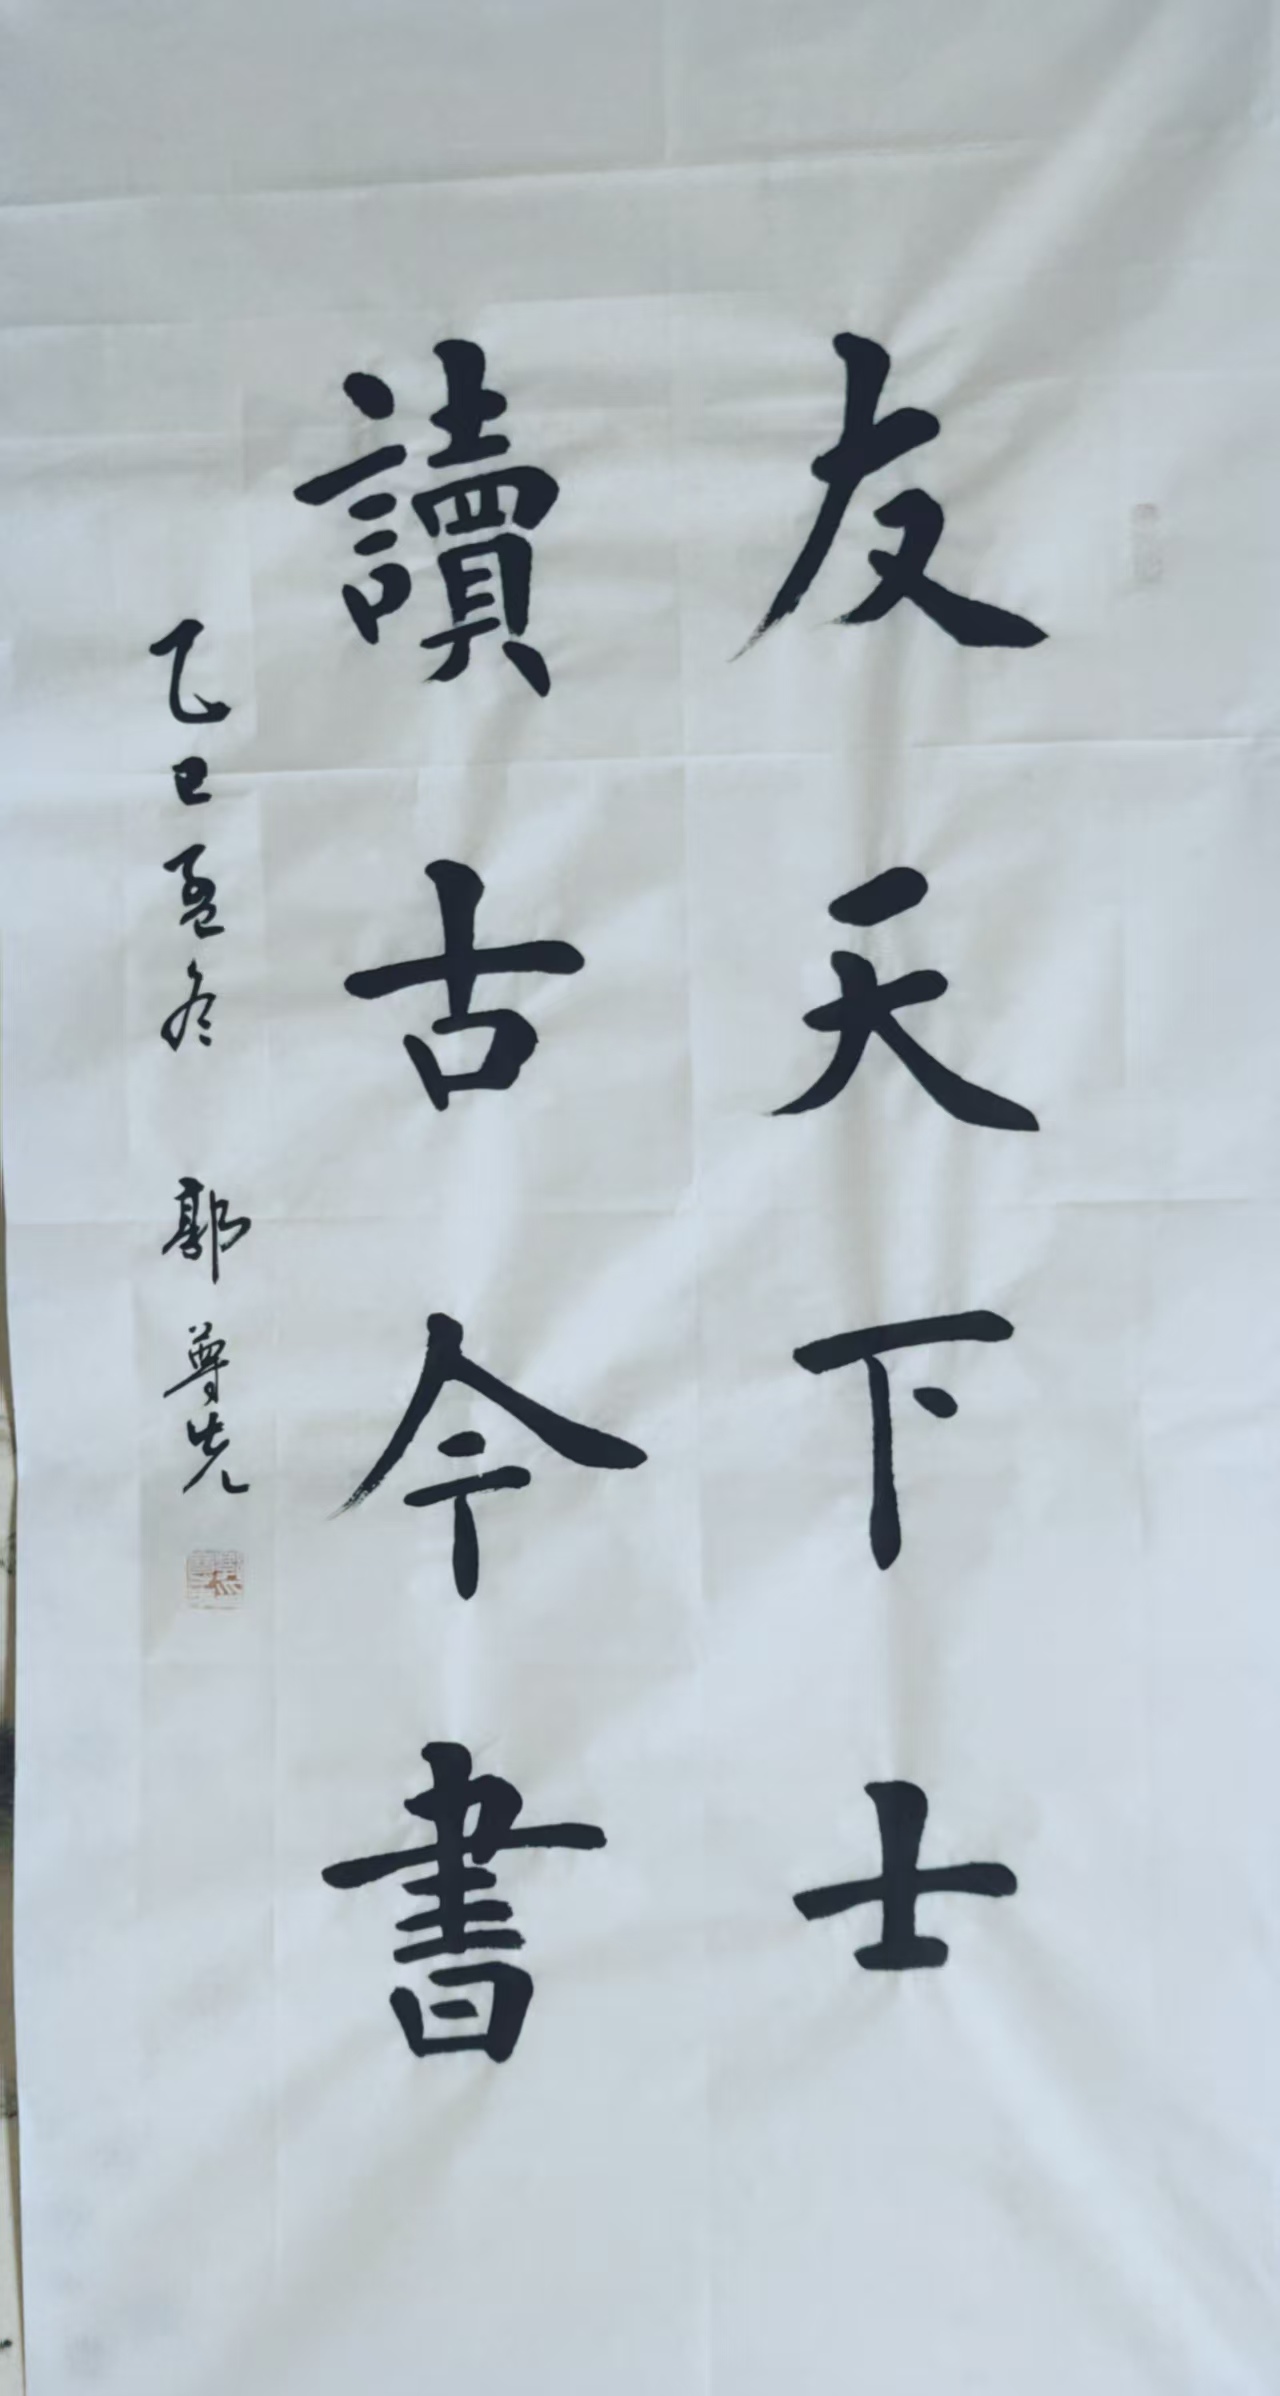 友天下士
讀古今書
乙巳孟冬 郭尊先